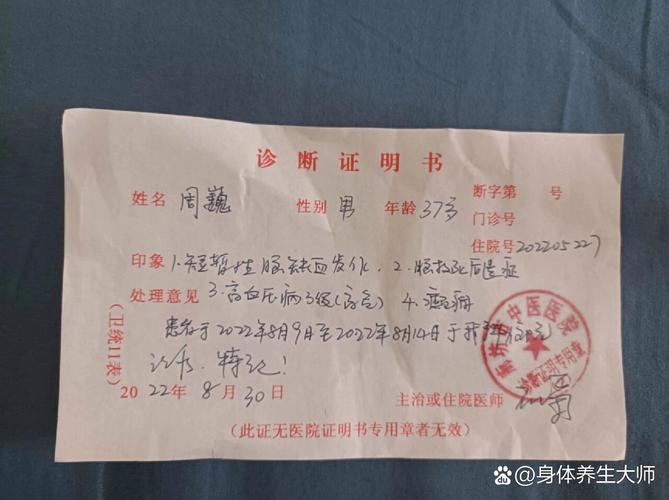 诊断证明书
姓名 周巍 性别 男 年龄 37岁 断字第 号
门诊号
住院号 202205227
印象 1.短暂性脑缺血发作 2.脑梗死后遗症
处理意见 3.高血压病3级(高危) 4.痛
患者于2022年8月9日至2022年8月14日于我科住院
治疗,特记!
2022年8月30日 主治或住院医师
(此证无医院证明书专用章者无效)
(卫统11表)
中医医院
诊断证明专用章
身体养生大师